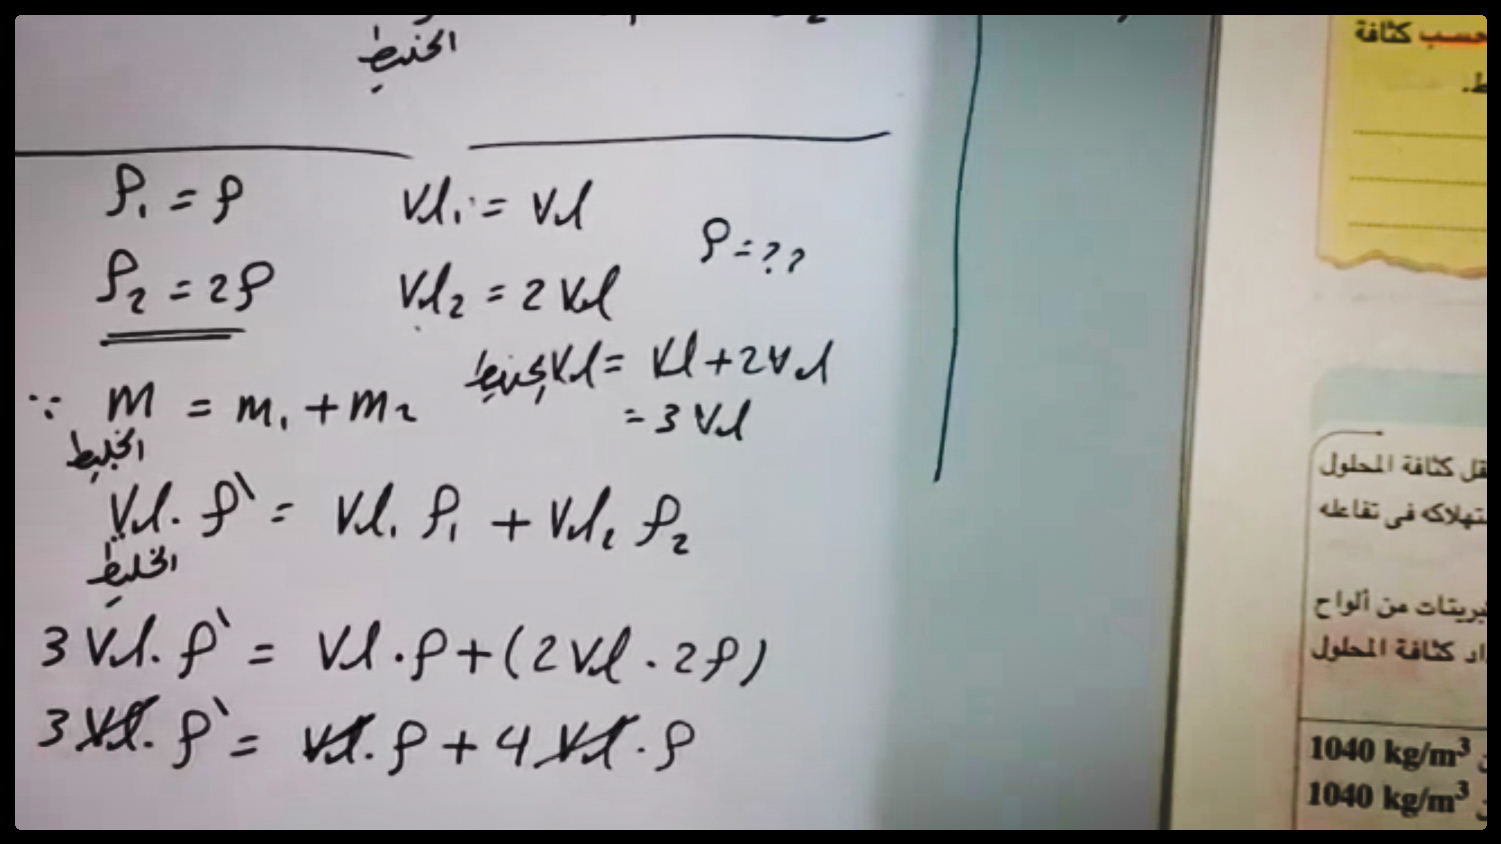 الخليط
ρ₁ = ρ
Vol₁ = Vol
ρ = ??
ρ₂ = 2ρ
Vol₂ = 2 Vol
الخليط Vol = Vol + 2Vol
= 3 Vol
∵ m = m₁ + m₂
الخليط
Vol. ρ' = Vol₁ ρ₁ + Vol₂ ρ₂
الخليط
3 Vol. ρ' = Vol . ρ + (2 Vol . 2ρ)
3 Vol. ρ' = Vol. ρ + 4 Vol . ρ
حسب كثافة
ط.
قل كثافة المحلول
تهلاكه فى تفاعله
بريتات من ألواح
اد كثافة المحلول
1040 kg/m³
1040 kg/m³